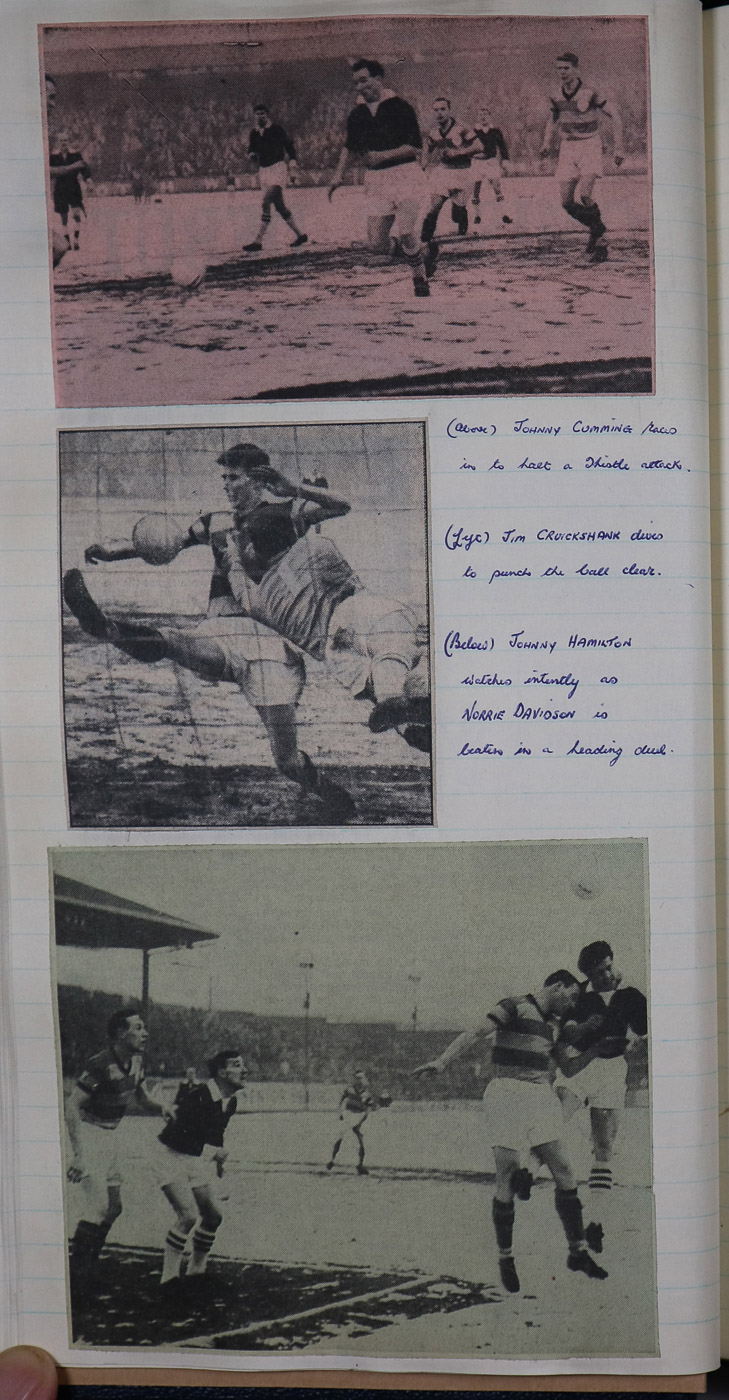 (Above) JOHNNY CUMMING races
in to halt a Thistle attack.
(Left) JIM CRUICKSHANK dives
to punch the ball clear.
(Below) JOHNNY HAMILTON
watches intently as
NORRIE DAVIDSON is
beaten in a heading duel.